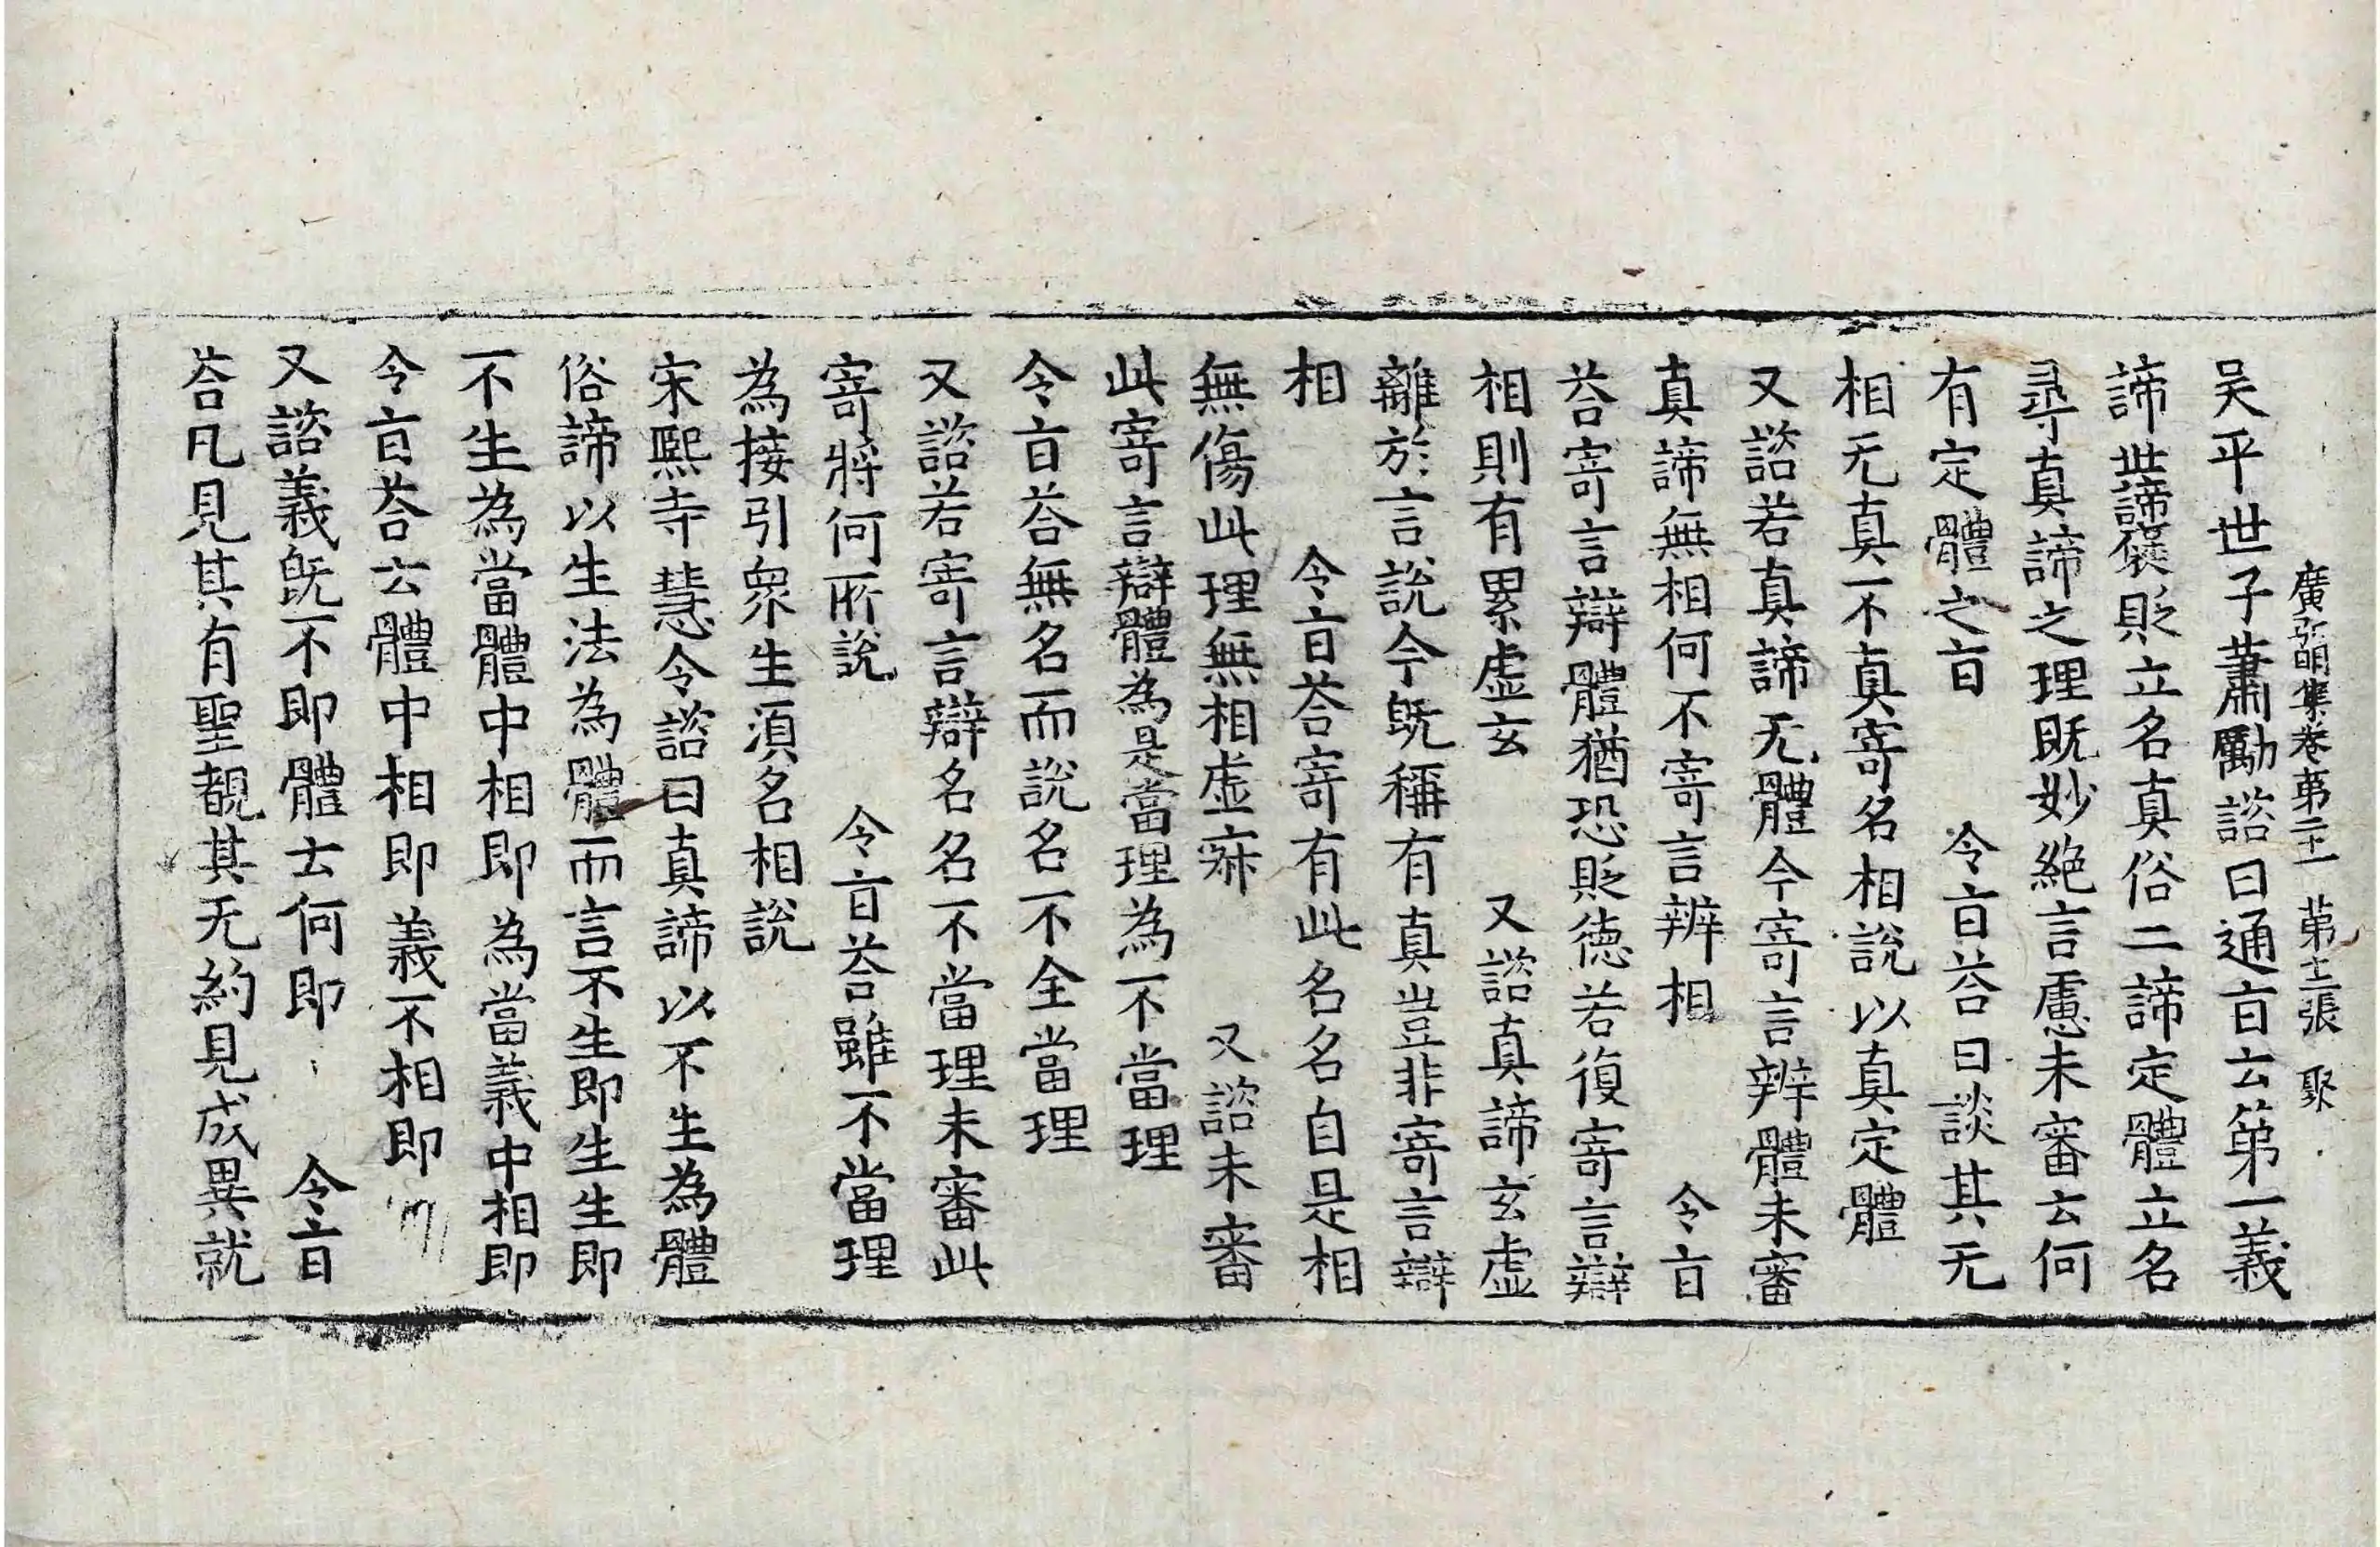 廣弘明集卷第二十一　第十二張　聚
吴平世子蕭勵諮曰通㫖云第一義
諦世諦襃貶立名真俗二諦定體立名
尋真諦之理既妙絶言慮未審云何
有定體之㫖　令㫖荅曰談其无
相无真不真寄名相說以真定體
又諮若真諦无體今寄言辨體未審
真諦無相何不寄言辨相　令㫖
荅寄言辯體猶恐貶德若復寄言辯
相則有累虛玄　又諮真諦玄虛
離於言說今既稱有真豈非寄言辯
相　令㫖荅寄有此名名自是相
無傷此理無相虛寂　又諮未審
此寄言辯體為是當理為不當理
令㫖荅無名而說名不全當理
又諮若寄言辯名名不當理未審此
寄將何所說　令㫖荅雖不當理
為接引衆生湏名相說
宋熙寺慧令諮曰真諦以不生為體
俗諦以生法為體而言不生即生生即
不生為當體中相即為當義中相即
令㫖荅云體中相即義不相即
又諮義既不即體云何即　令㫖
荅凡見其有聖覩其无約見成異就